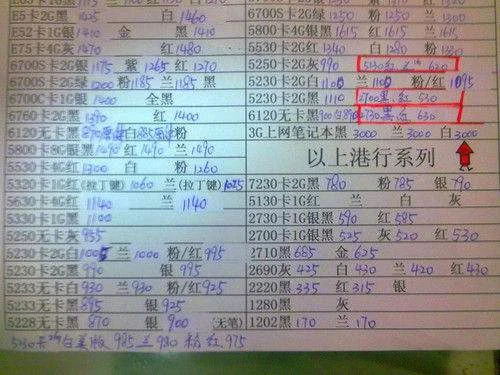 E5卡2G黑 1425 白 1460
E52卡1G银 1410 金 黑 1410
E75卡4G灰 1475 红 1480
6700S卡2G银 1175 紫 1265 红 1270
6700S卡2G绿 1200 粉 1185 兰 1185 黑
6700C卡1G银 1400 全黑
6760卡2G黑 1390 红 1400
6120无卡黑 粉
5800卡8G银 1490 红 1490 兰 1490
5530卡4G红 1300 白 粉 1260
5320卡1G红(拉丁键) 1060 兰(拉丁键) 1025
5630卡4G红 1140 兰 1140
5330卡1G黑 1100
5250无卡灰 935
5230卡2G白 1005 兰 1000 粉/红 995
5230卡2G黑 990 银 995
5233无卡白 930 兰 930 粉/红 925
5233无卡黑 895 银 925
5228无卡黑 870 银 900 (无笔)
5130卡2G白美版 985 兰 980 粉 红 975
6700S卡2G绿 1250 粉 1250 兰 1250
5800卡4G银 1615 兰 1610 红 1615
5530卡2G红 1340 白 1280 粉 1330
5250卡2G灰 990 5130红 兰 1G 620
5230卡2G白 1105 兰 1100 粉/红 1095
5230卡2G黑 1110 2700黑 红 530
6120无卡黑 2730黑 红 630
3G上网笔记本黑 3000 兰 3000 白 3000
以上港行系列
7230卡2G黑 780 粉 785 银 790
5130卡1G红 兰 白 灰
2730卡1G黑 590 红 585
2700卡1G银黑 525 灰 520 红 530
2710黑 685 金 625
2690灰 425 白 430 兰 420 红 430
2220黑 335 红 315 银
1280黑 灰
1202黑 170 兰 170